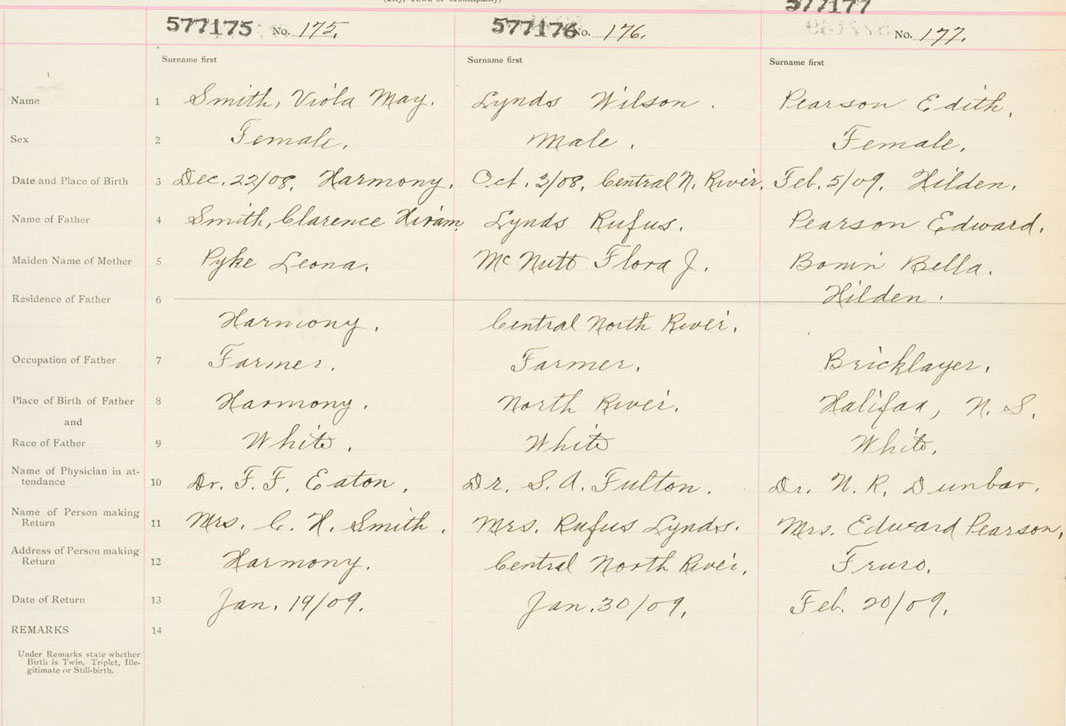 (City, Town or Municipality)
577175 No. 175. 577176 No. 176. 577177 No. 177.
Surname first Surname first Surname first
Name 1 Smith, Viola May. Lynds Wilson. Pearson Edith.
Sex 2 Female. Male. Female.
Date and Place of Birth 3 Dec. 22/08. Harmony. Oct. 3/08, Central N. River. Feb. 5/09. Hilden.
Name of Father 4 Smith, Clarence Hiram Lynds Rufus. Pearson Edward.
Maiden Name of Mother 5 Pyke Leona. McNutt Flora J. Bella.
Residence of Father 6 Hilden.
Harmony. Central North River.
Occupation of Father 7 Farmer. Farmer. Bricklayer.
Place of Birth of Father 8 Harmony. North River. Halifax, N. S.
and
Race of Father 9 White. White White.
Name of Physician in at-
tendance 10 Dr. F. F. Eaton. Dr. S. A. Fulton. Dr. N. R. Dunbar.
Name of Person making
Return 11 Mrs. C. H. Smith. Mrs. Rufus Lynds. Mrs. Edward Pearson,
Address of Person making
Return 12 Harmony. Central North River. Truro.
Date of Return 13 Jan. 19/09. Jan. 30/09. Feb. 20/09.
REMARKS 14
Under Remarks state whether
Birth is Twin, Triplet, Ille-
gitimate or Still-birth.